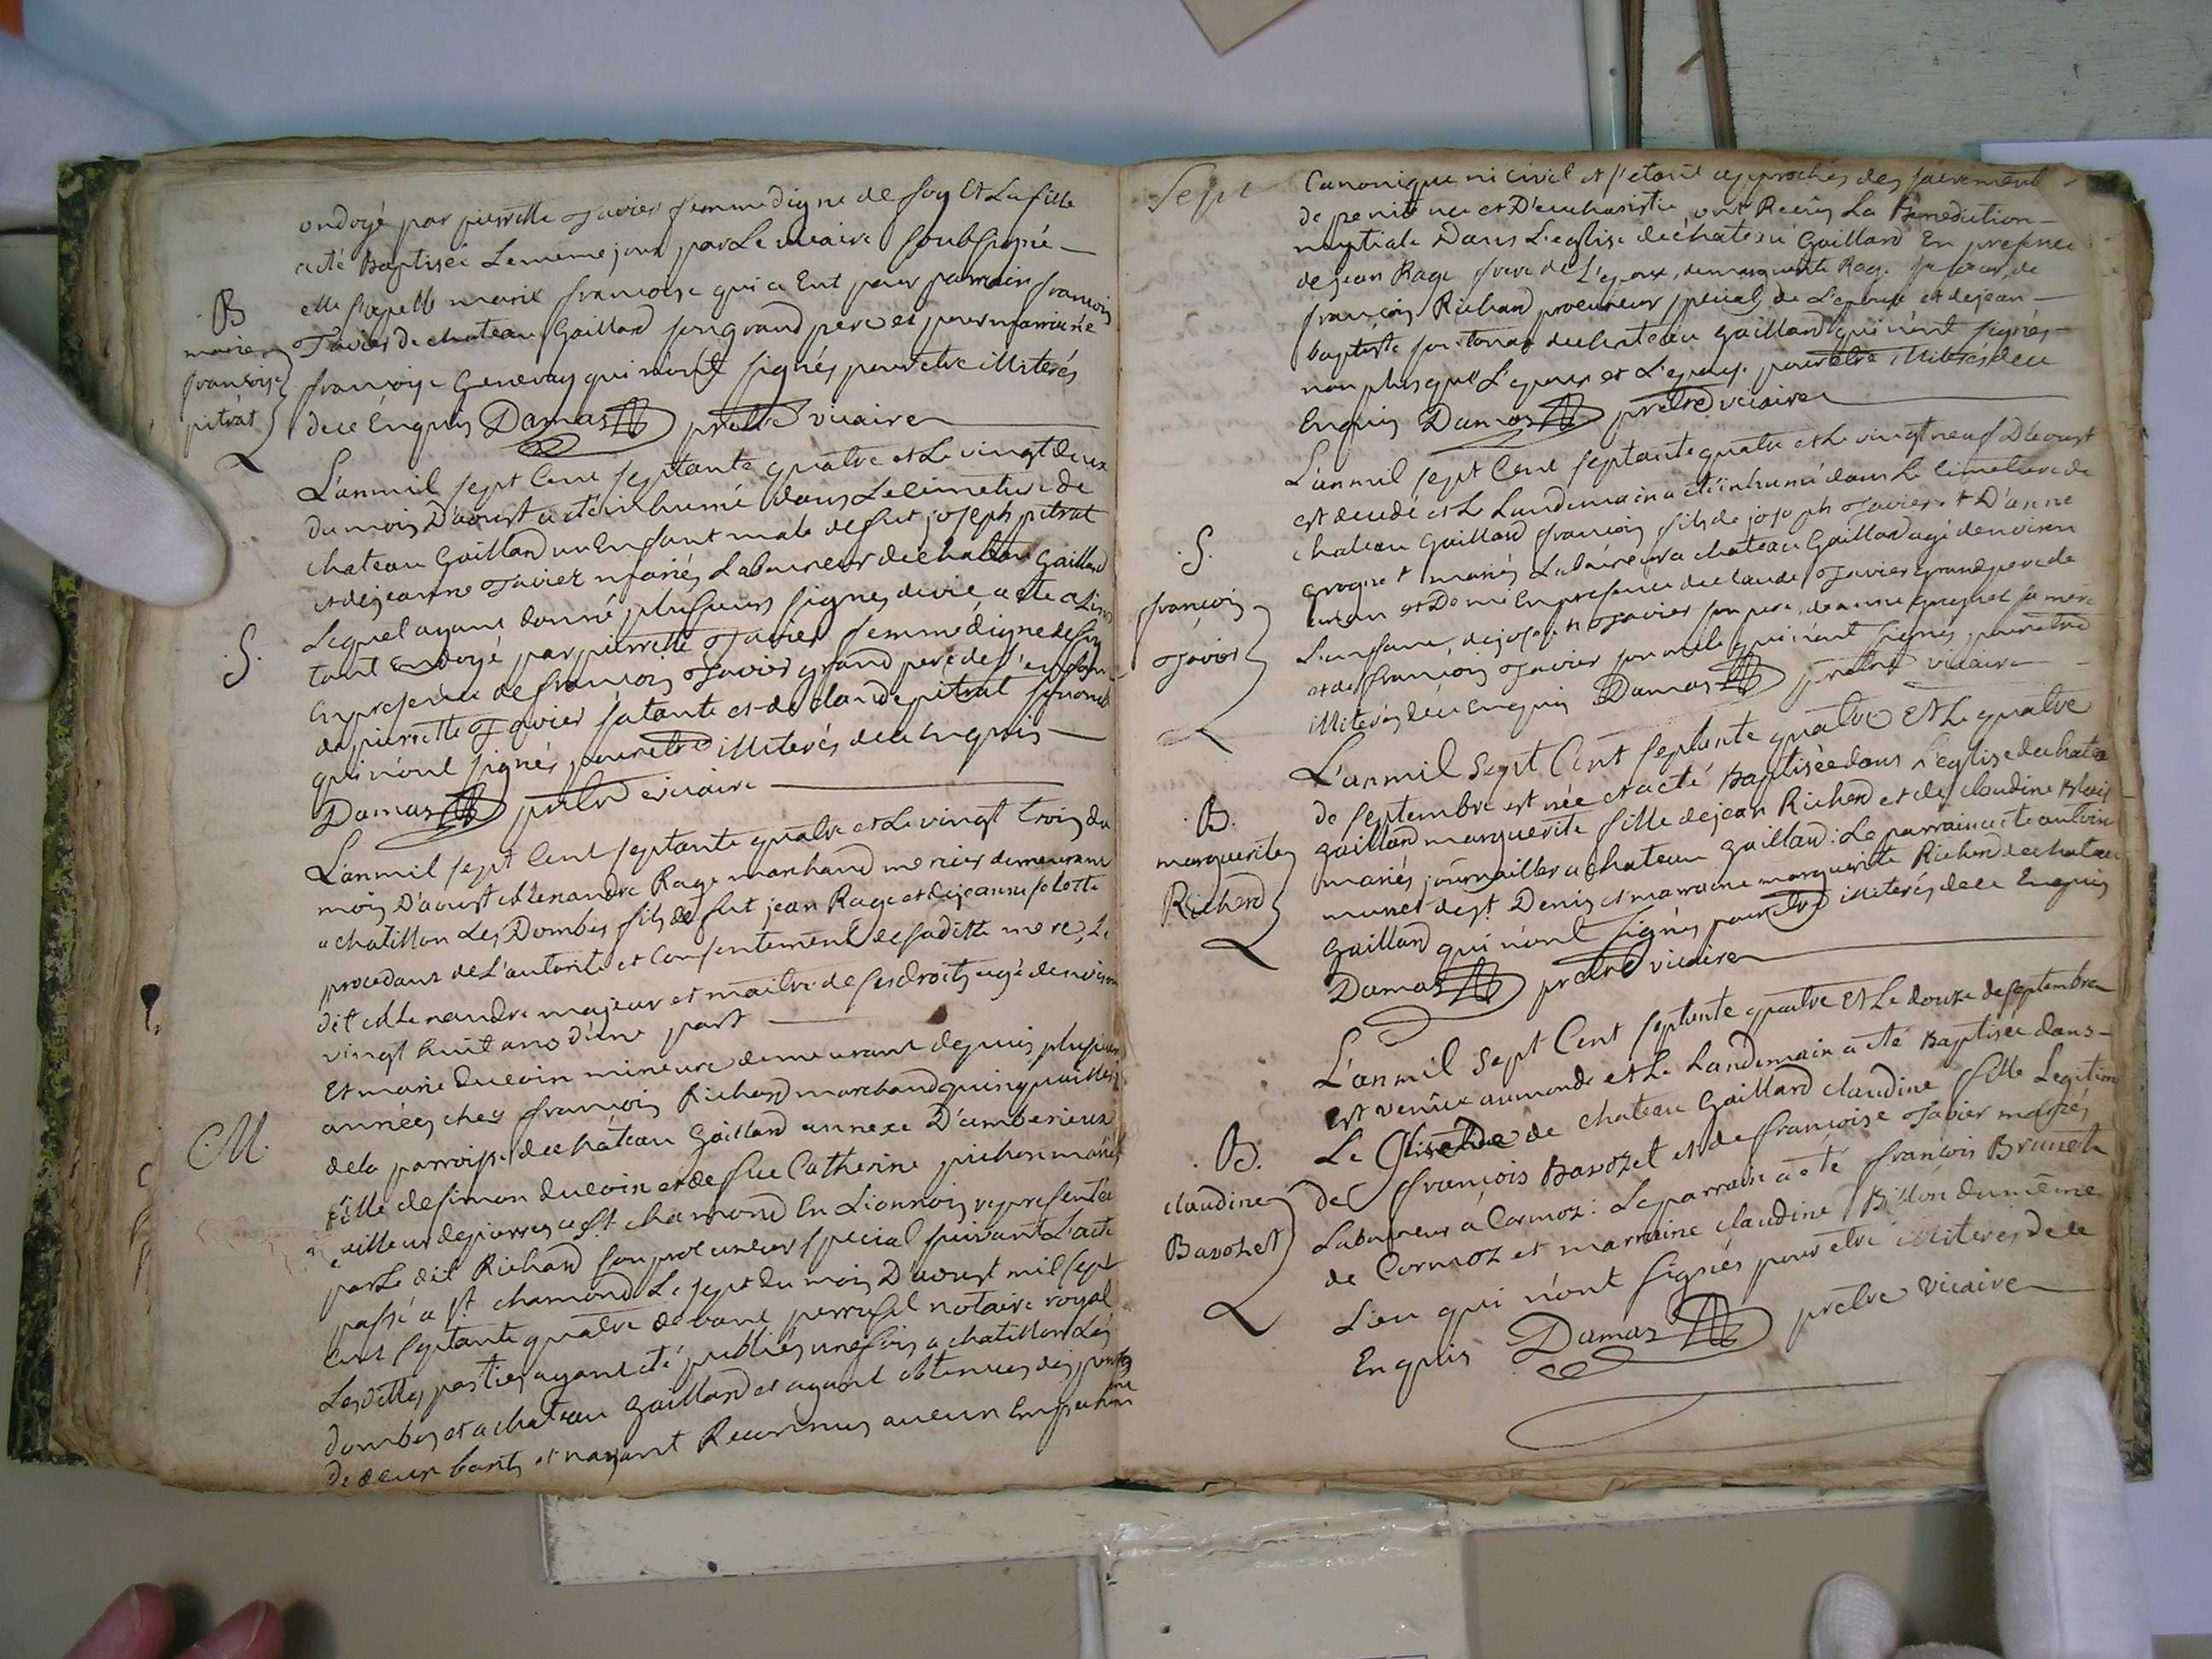 ondoyé par pierrette Tavier femme digne de foy Et La fille
a été Baptisée Le meme jour par Le vicaire soubsigné
elle s'apelle marie francoise qui a Eut pour parrain françois
Tavier de chateau Gaillard son grand pere et pour marraine
françoise Genevay qui n'ont signés pour etre illiterés
de ce Enquis Damas prêtre vicaire
B
marie
françoise
pitrat
L'an mil sept Cent septante quatre et Le vingt deux
du mois D'aoust a été inhumé dans Le cimetiere de
chateau Gaillard un Enfant male de fut joseph pitrat
et de jeanne Tavier mariés Laboureur de chateau Gaillard
Lequel ayant donné plusieurs signes de vie a été
ondoyé par pierrette Tavier femme digne de foy
En presence de françois Tavier grand pere de l'enfant
de pierrette Tavier sa tante et de claude pitrat son oncle
qui n'ont signés pour etre illiterés de ce Enquis
Damas prêtre vicaire
S.
L'an mil sept Cent septante quatre et Le vingt trois du
mois D'aoust allexandre Rage marchand mercier demeurant
a chatillon Les Dombes fils de fut jean Rage et de jeanne
procedant de L'autorité et Consentement de sa ditte mere, Le
dit allexandre majeur et maitre de ses droits agé d'environ
vingt huit ans d'une part
Et marie Ducoin mineure demeurant depuis plusieurs
années chez françois Richard marchand quinquaillier
de la parroisse de château Gaillard annexe D'amberieux
fille de simon Ducoin et de fue Catherine pichon mariés
tailleur de pierres a St. chamond En Lionnois representée
par Le dit Richard son procureur special suivant L'acte
passé a St. chamond Le sept du mois D'aoust mil sept
cent septante quatre devant notaire royal
Les dittes parties ayant été publiés une fois a chatillon Les
dombes et a chateau Gaillard et ayant obtenues dispenses
de deux bants et n'ayant Reconnus aucun Empechement
M.
Sept
Canonique ni civil et s'etant approchés des sacrement
de penitence et D'eucharistie, ont Recûs La Benediction
nuptiale Dans L'eglise de château Gaillard En presence
de jean Rage frere de L'epoux, de marguerite Rage sa sœur, de
françois Richard procureur special de L'epouse et de jean
baptiste de chateau gaillard qui n'ont signés
non plus que L'epoux et L'epouse pour etre illiterés de ce
Enquis Damas prêtre vicaire
L'an mil sept Cent septante quatre et Le vingt neuf D'aoust
est decedé et Le Landemain a été inhumé dans Le cimetiere de
chateau Gaillard françois fils de joseph Tavier et D'anne
groquet mariés Laboureur a chateau Gaillard agé d'environ
un an et Demi En presence de claude Tavier grand pere de
L'enfant, de joseph Tavier son pere, de anne groquet sa mere
et de françois Tavier son oncle qui n'ont signés pour etre
illiterés de ce Enquis Damas prêtre vicaire
S.
françois
Tavier
L'an mil Sept Cent septante quatre Et Le quatre
de septembre est née et a été Baptisée dans L'eglise de chateau
gaillard marguerite fille de jean Richerd et de claudine
mariés journallier a chateau gaillard: Le parrain a été antoine
munet de St. Denis et marraine marguerite Richerd de chateau
gaillard qui n'ont signés pour etre illiterés de ce Enquis
Damas prêtre vicaire
B.
marguerite
Richerd
L'an mil Sept Cent septante quatre Et Le douze de septembre
est venüe au monde et Le Landemain a été Baptisée dans
Le de chateau Gaillard claudine fille Legitime
de françois Bavozet et de françoise Tavier mariés
Laboureur à Cormoz: Le parrain a été françois Brunet
de Cormoz et marraine claudine Billon du même
Lieu qui n'ont signés pour etre illiterés de ce
Enquis Damas prêtre vicaire
B.
claudine
Bavozet